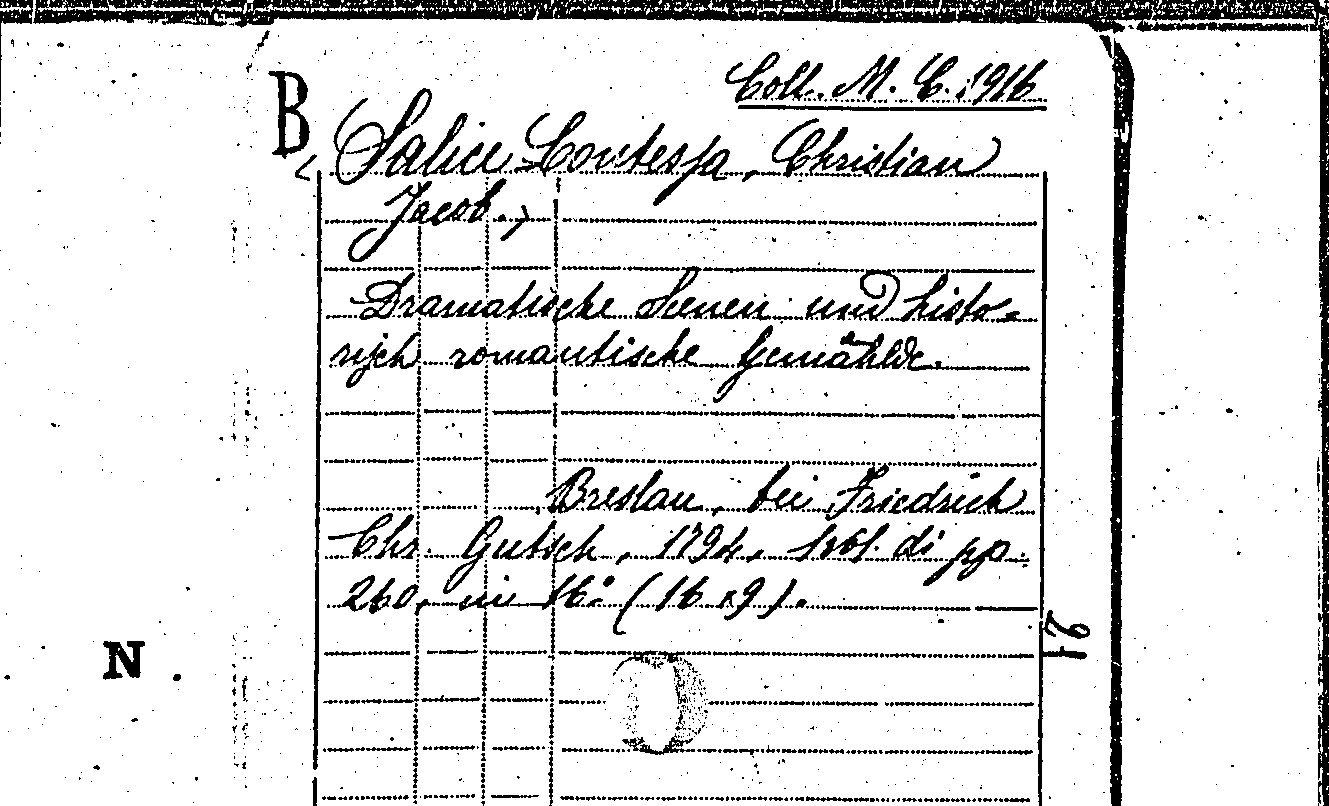 B
Coll. M. C. 1916
(Salice Contessa, Christian
Jacob.)
Dramatische Scenen und histo-
risch romantische Gemählde.
Breslau, bei Friedrich
Chr. Gutsch, 1794, 1 vol. di pp.
260, in 16° (16 x 9).
N